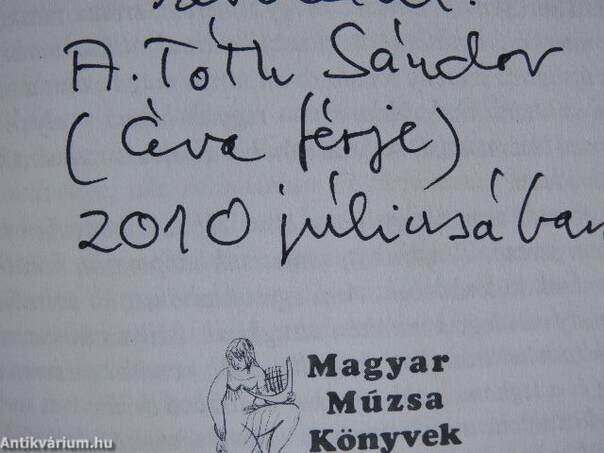 A. Tóth Sándor
(Éva férje)
2010 júliusában
Magyar
Múzsa
Könyvek
Antikvárium.hu